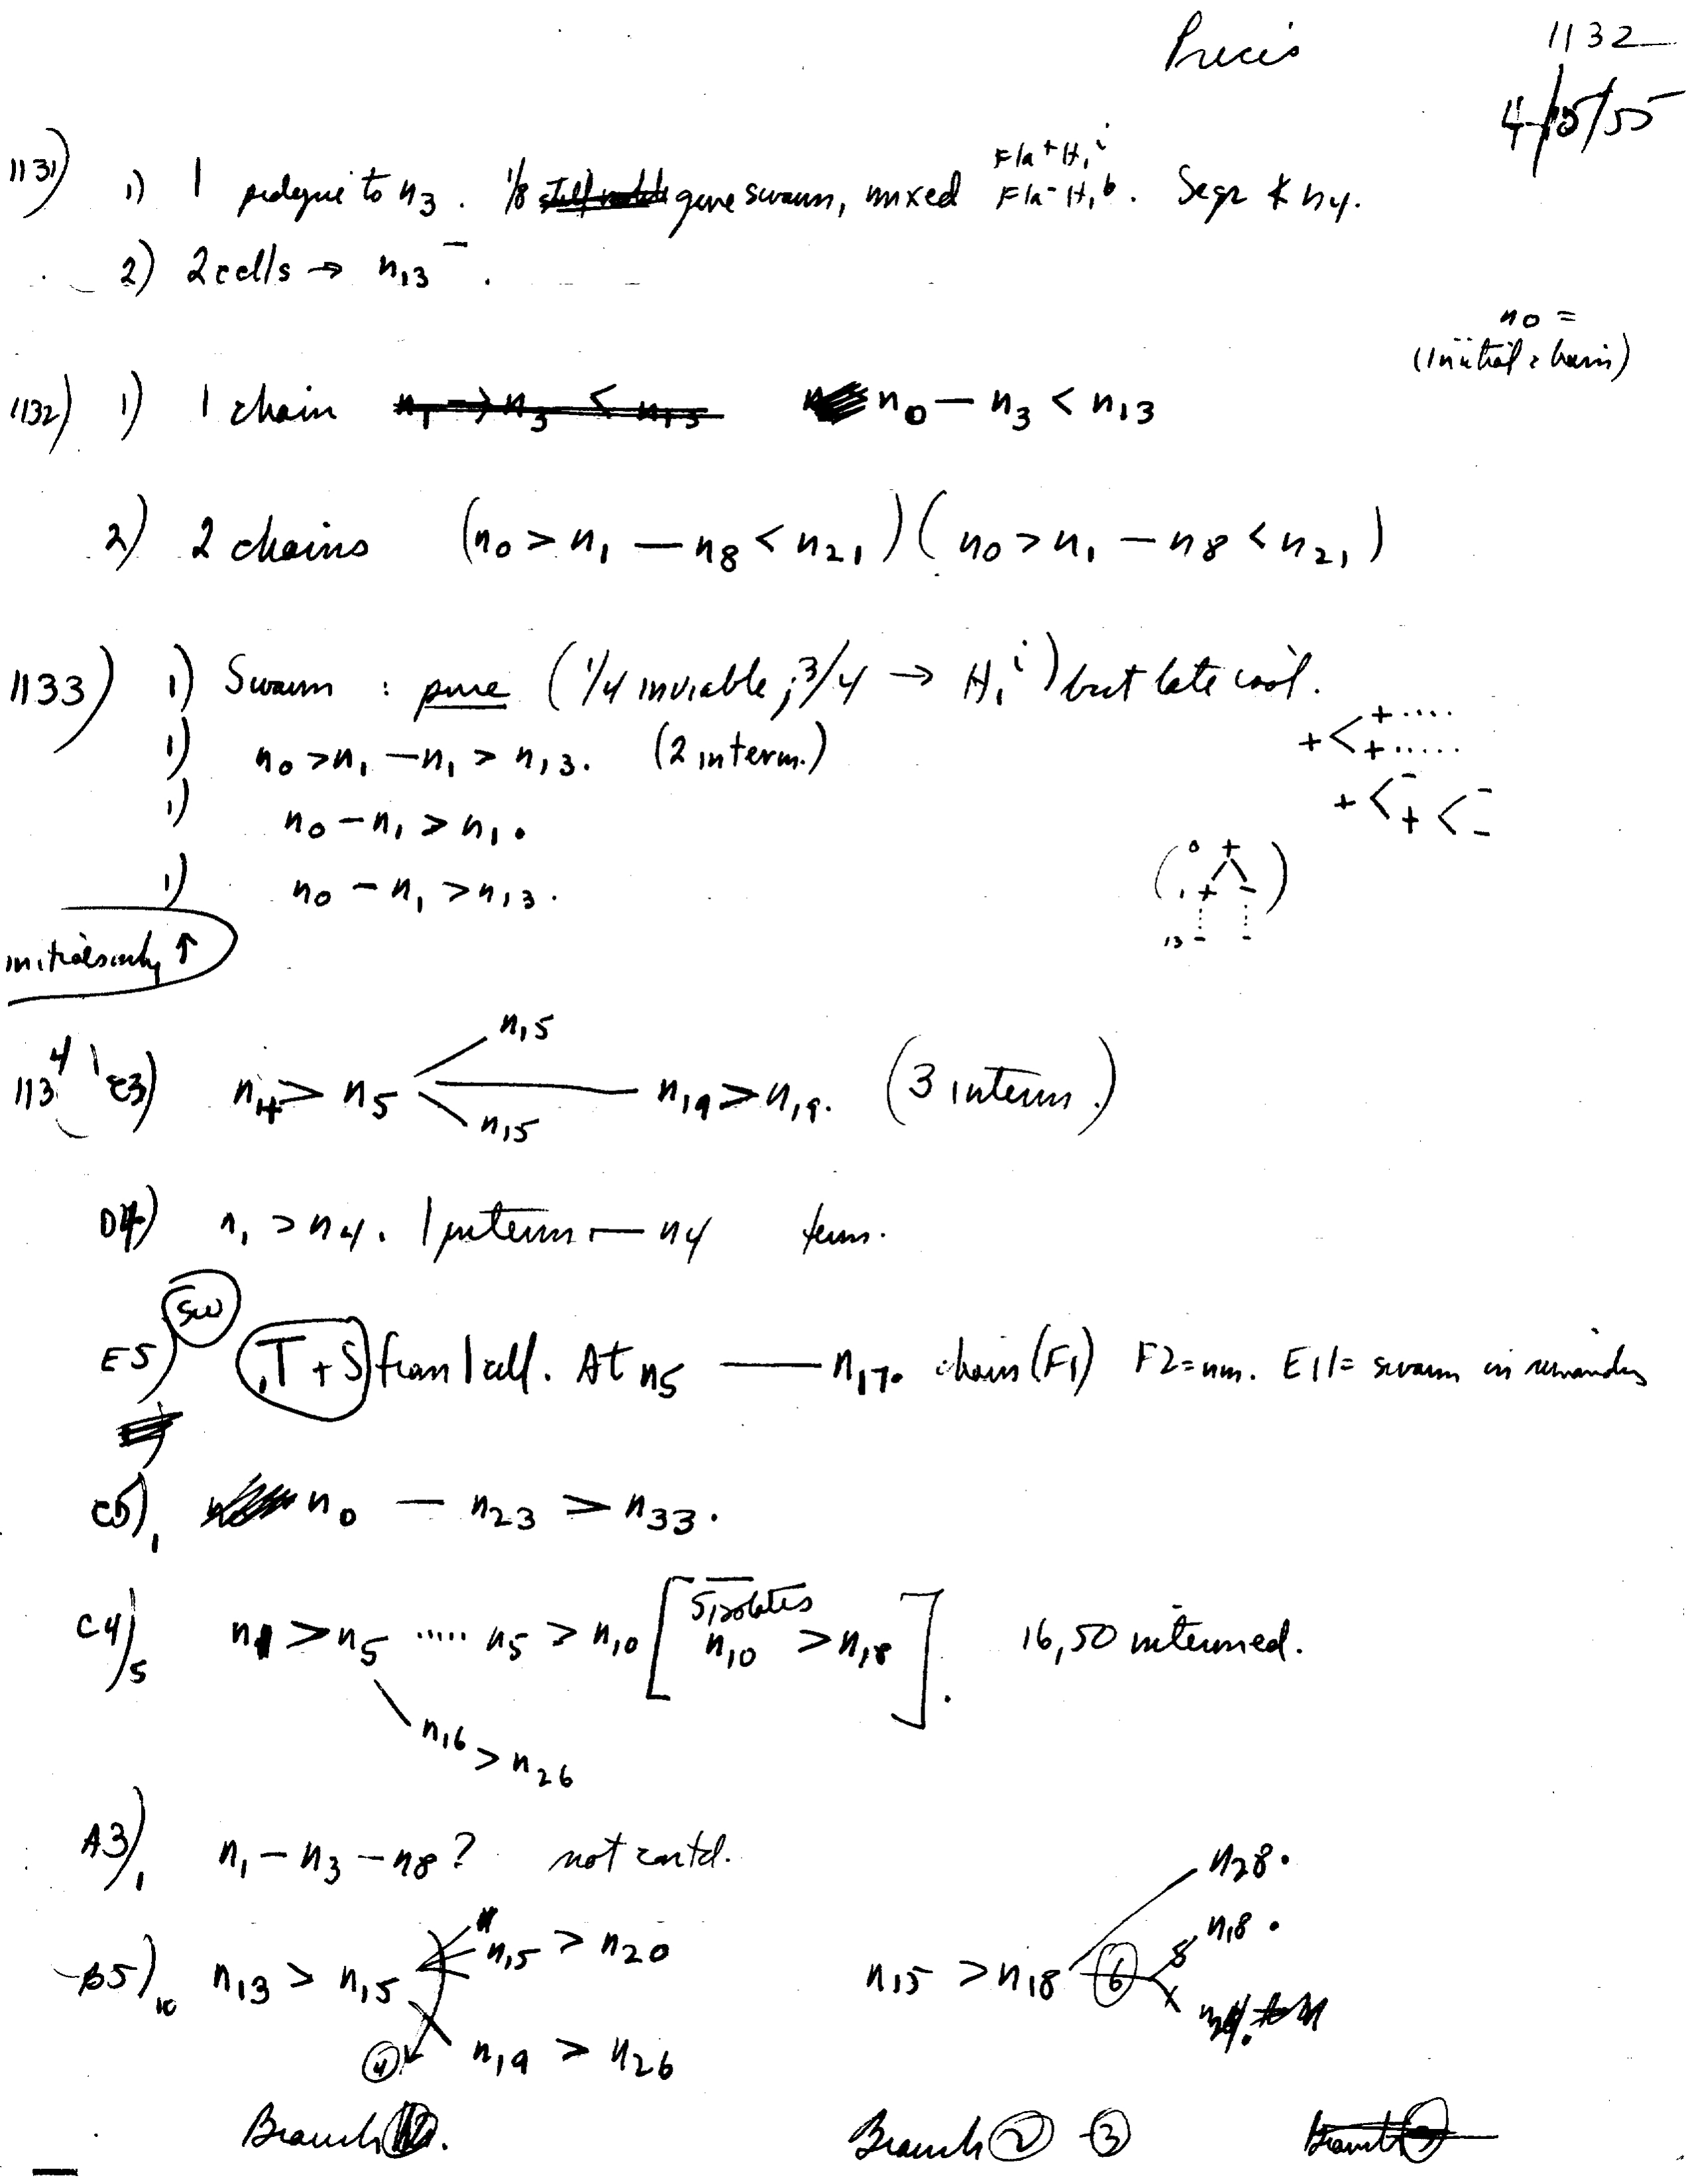 Precis 1132
4/15/55
1131) 1) 1 pedigree to n3. 1/8 gave swarm, mixed Fla+ H1i Fla- H1b. Segr n4.
2) 2 cells → n13 -.
n0 =
(initial chain)
1132) 1) 1 chain n1 → n3 < n13 n0 — n3 < n13
2) 2 chains (n0 > n1 — n8 < n21) (n0 > n1 — n8 < n21)
1133) 1) Swarm : pure (1/4 inviable; 3/4 → H1i) but late
1) n0 > n1 — n1 > n13. (2 interm.)
+ < + ····
+ ·····
1) n0 — n1 > n1.
+ < -
+ < -
-
1) n0 — n1 > n13.
( 0 +
1 + -
13 - - )
initials only ↑
1134 1 C3) n4 > n5 n15
n19 > n19. (3 interm.)
n15
D4) n1 > n4. 1 interm — n4 term.
Sw
E5) 1T + S from 1 cell. At n5 — n17. chain (F1) F2 = nm. E11 = swarm in remainder
C5)1 n0 — n23 > n33.
C4)5 n1 > n5 ····· n5 > n10 [5 isolates n10 > n18]. 16, 50 intermed.
n16 > n26
A3)1 n1 — n3 — n8? not contd.
B5)10 n13 > n15 n15 > n20
④ n19 > n26
n15 > n18 n28.
⑥ 8 n18.
Branch .
Branch ② - ③
Branch